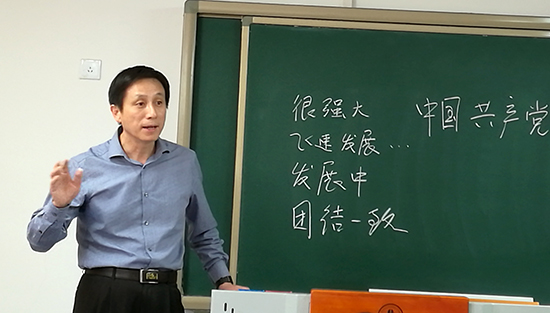 很强大
中国共产党
飞速发展...
发展中
团结一致